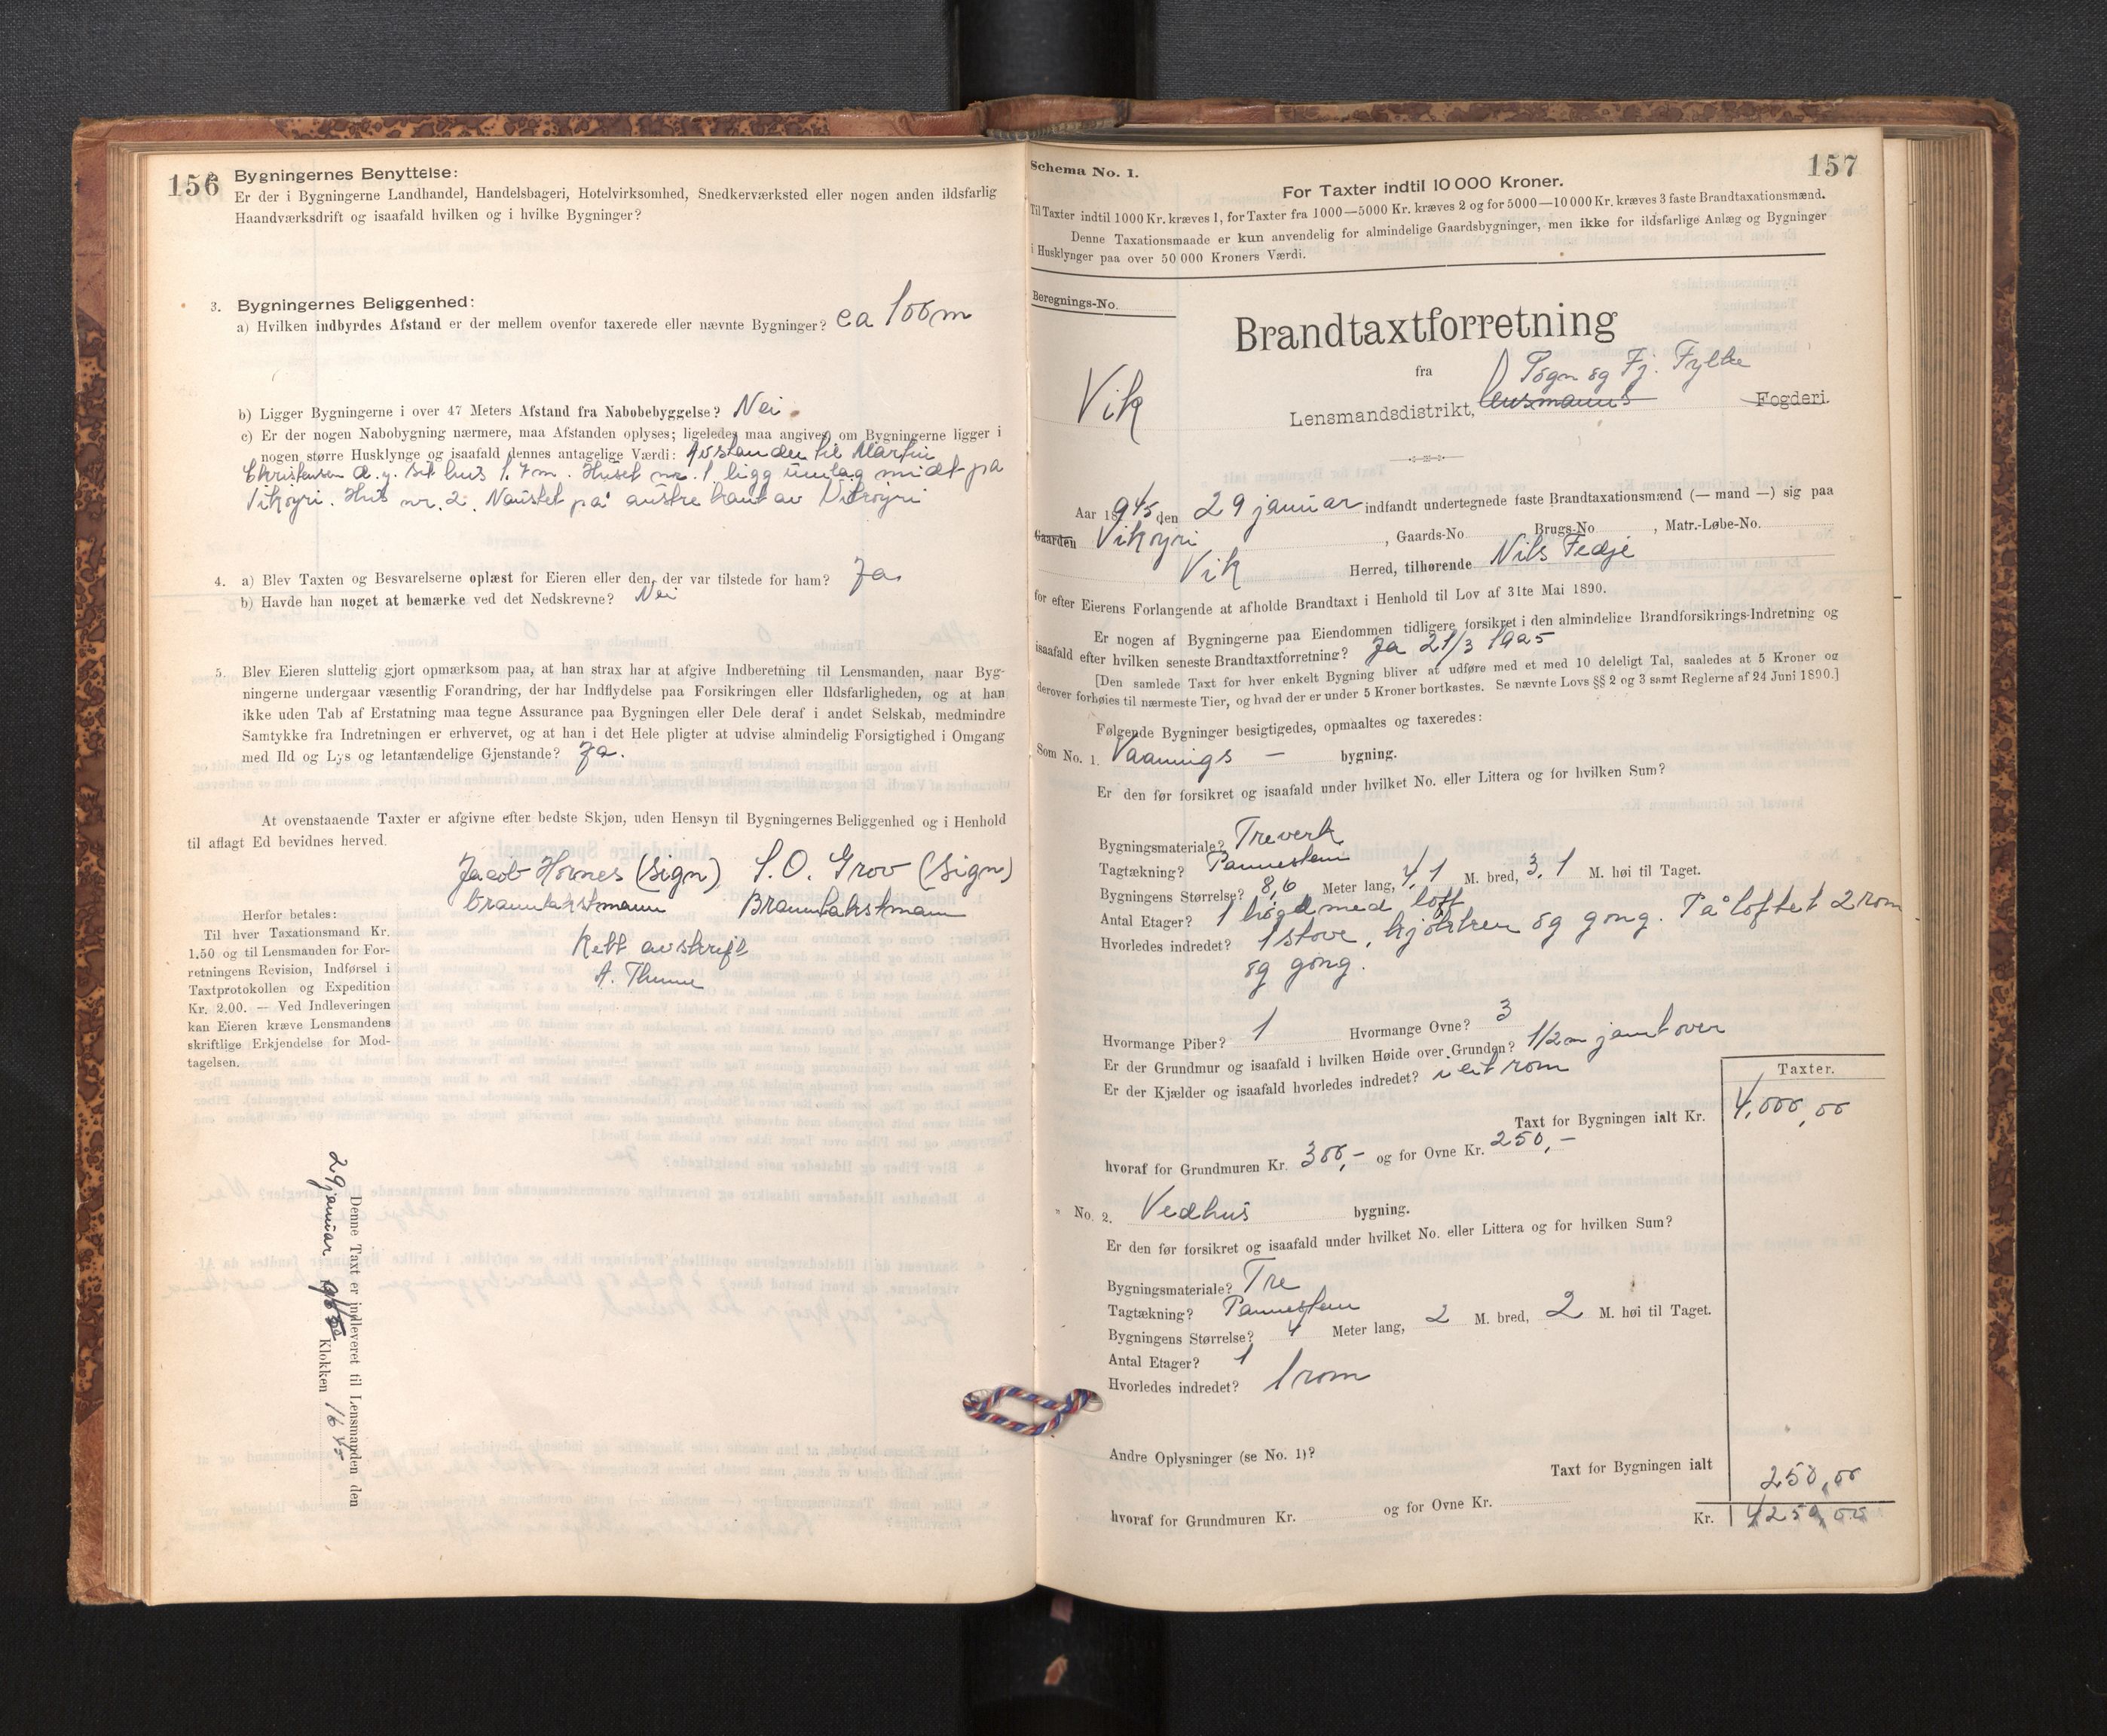 156
Bygningernes Benyttelse:
Er der i Bygningerne Landhandel, Handelsbageri, Hotelvirksomhed, Snedkerværksted eller nogen anden ildsfarlig
Haandværksdrift og isaafald hvilken og i hvilke Bygninger?
3. Bygningernes Beliggenhed:
a) Hvilken indbyrdes Afstand er der mellem ovenfor taxerede eller nævnte Bygninger? ca 100 m
b) Ligger Bygningerne i over 47 Meters Afstand fra Nabobebyggelse? Nei.
c) Er der nogen Nabobygning nærmere, maa Afstanden oplyses; ligeledes maa angives, om Bygningerne ligger i
nogen større Husklynge og isaafald dennes antagelige Værdi: Avstanden til Martin
Christensen d. y. sit hus 1.7 m. Huset nr. 1 ligg umlag midt på
Vikøyri. Hus nr. 2. Naustet på austre kant av Vikøyri
4. a) Blev Taxten og Besvarelserne oplæst for Eieren eller den, der var tilstede for ham? Ja
b) Havde han noget at bemærke ved det Nedskrevne? Nei
5. Blev Eieren sluttelig gjort opmærksom paa, at han strax har at afgive Indberetning til Lensmanden, naar Byg-
ningerne undergaar væsentlig Forandring, der har Indflydelse paa Forsikringen eller Ildsfarligheden, og at han
ikke uden Tab af Erstatning maa tegne Assurance paa Bygningen eller Dele deraf i andet Selskab, medmindre
Samtykke fra Indretningen er erhvervet, og at han i det Hele pligter at udvise almindelig Forsigtighed i Omgang
med Ild og Lys og letantændelige Gjenstande? Ja.
At ovenstaaende Taxter er afgivne efter bedste Skjøn, uden Hensyn til Bygningernes Beliggenhed og i Henhold
til aflagt Ed bevidnes herved.
Jacob Hornes (sign) S. O. Grov (sign)
branntakstmann Branntakstmann
Rett avskrift
A. Thune
Herfor betales:
Til hver Taxationsmand Kr.
1.50 og til Lensmanden for For-
retningens Revision, Indførsel i
Taxtprotokollen og Expedition
Kr. 2.00. — Ved Indleveringen
kan Eieren kræve Lensmandens
skriftlige Erkjendelse for Mod-
tagelsen.
Denne Taxt er indleveret til Lensmanden den
29 januar Klokken 16 45
157
Schema No. 1.
For Taxter indtil 10 000 Kroner.
Til Taxter indtil 1000 Kr. kræves 1, for Taxter fra 1000—5000 Kr. kræves 2 og for 5000—10 000 Kr. kræves 3 faste Brandtaxationsmænd.
Denne Taxationsmaade er kun anvendelig for almindelige Gaardsbygninger, men ikke for ildsfarlige Anlæg og Bygninger
i Husklynger paa over 50 000 Kroners Værdi.
Beregnings-No.
Brandtaxtforretning
fra
Vik Lensmandsdistrikt, lensmanns Sogn og Fj. Fylke Fogderi.
Aar 1945 den 29 januar indfandt undertegnede faste Brandtaxationsmænd (— mand —) sig paa
Gaarden Vikøyri, Gaards-No , Brugs-No , Matr.-Løbe-No.
Vik Herred, tilhørende Nils Fedje
for efter Eierens Forlangende at afholde Brandtaxt i Henhold til Lov af 31te Mai 1890.
Er nogen af Bygningerne paa Eiendommen tidligere forsikret i den almindelige Brandforsikrings-Indretning og
isaafald efter hvilken seneste Brandtaxtforretning? Ja 21/3 1925
[Den samlede Taxt for hver enkelt Bygning bliver at udføre med et med 10 deleligt Tal, saaledes at 5 Kroner og
derover forhøies til nærmeste Tier, og hvad der er under 5 Kroner bortkastes. Se nævnte Lovs §§ 2 og 3 samt Reglerne af 24 Juni 1890.]
Følgende Bygninger besigtigedes, opmaaltes og taxeredes:
Som No. 1. Vaanings — bygning.
Er den før forsikret og isaafald under hvilket No. eller Littera og for hvilken Sum?
Bygningsmateriale? Treverk
Tagtækning? Pannestein
Bygningens Størrelse? 8,6 Meter lang, 4,1 M. bred, 3,1 M. høi til Taget.
Antal Etager? 1 høgd med loft
Hvorledes indredet? 1 stove, kjøkken og gong. På loftet 2 rom
og gong.
Hvormange Piber? 1 Hvormange Ovne? 3
Er der Grundmur og isaafald i hvilken Høide over Grunden? 1/2 m jamt over
Er der Kjælder og isaafald hvorledes indredet? i eit rom
Taxter.
Taxt for Bygningen ialt Kr. 4.000,00
hvoraf for Grundmuren Kr. 300,- og for Ovne Kr. 250,-
" No. 2. Vedhus bygning.
Er den før forsikret og isaafald under hvilket No. eller Littera og for hvilken Sum?
Bygningsmateriale? Tre
Tagtækning? Pannestein
Bygningens Størrelse? 4 Meter lang, 2 M. bred, 2 M. høi til Taget.
Antal Etager? 1
Hvorledes indredet? 1 rom
Andre Oplysninger (se No. 1)?
Taxt for Bygningen ialt 250,00
hvoraf for Grundmuren Kr. og for Ovne Kr.
Kr. 4250,00